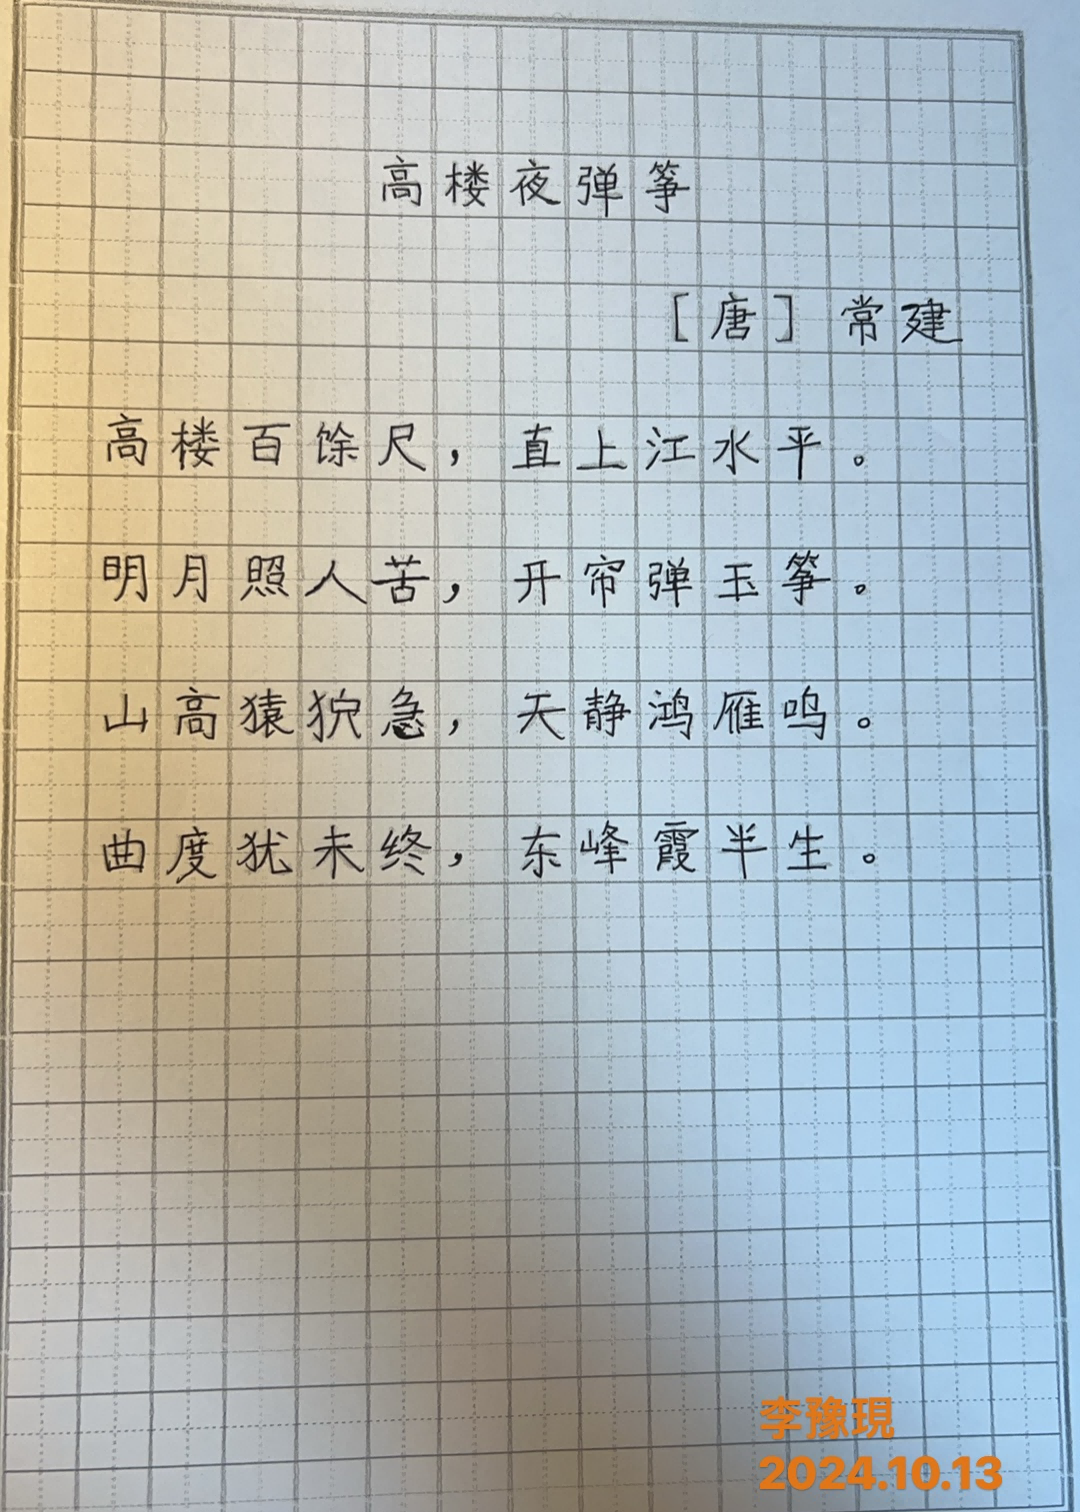 高楼夜弹筝
[唐] 常建
高楼百馀尺，直上江水平。
明月照人苦，开帘弹玉筝。
山高猿狖急，天静鸿雁鸣。
曲度犹未终，东峰霞半生。
李豫現
2024.10.13